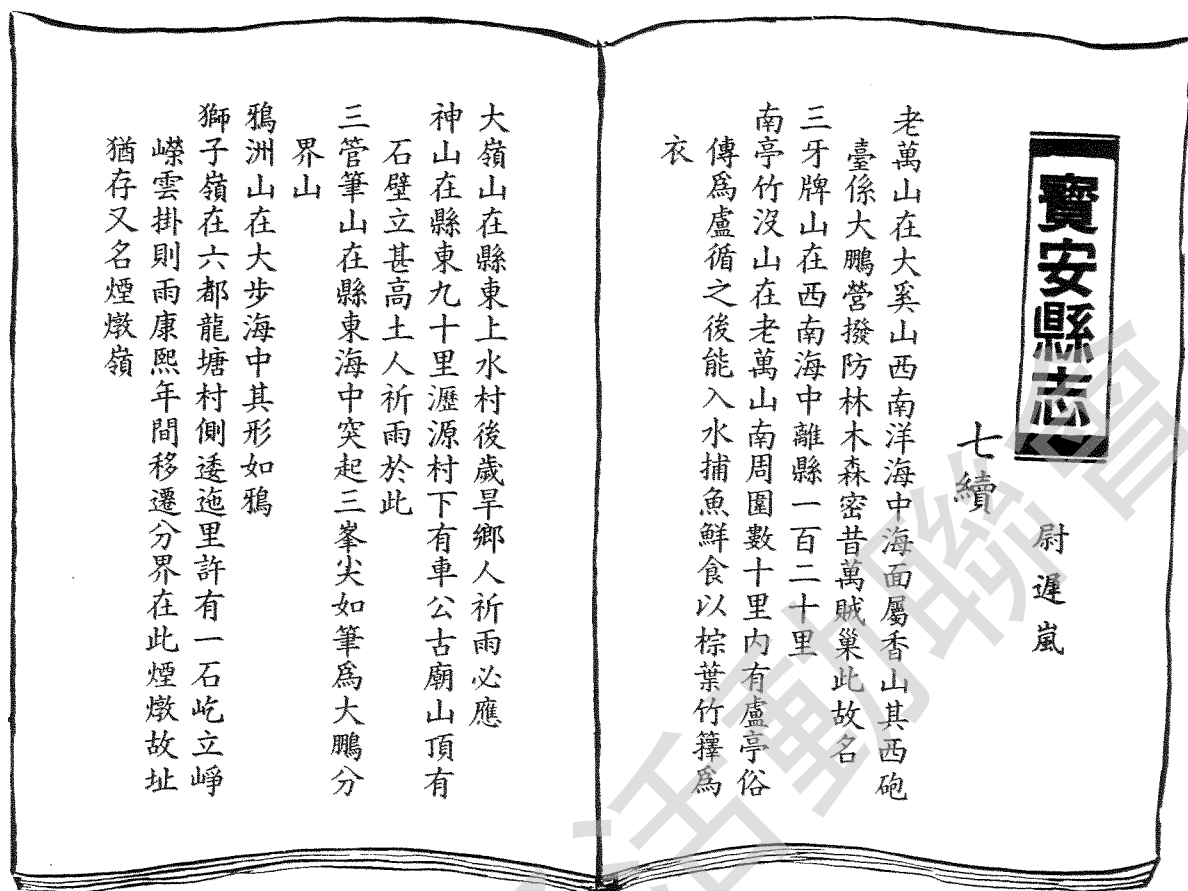 寶安縣志
七續
尉遲嵐
老萬山在大奚山西南洋海中海面屬香山其西砲
臺係大鵬營撥防林木森密昔萬賊巢此故名
三牙牌山在西南海中離縣一百二十里
南亭竹沒山在老萬山南周圍數十里内有盧亭俗
傳爲盧循之後能入水捕魚鮮食以棕葉竹籜爲
衣
大嶺山在縣東上水村後歲旱鄉人祈雨必應
神山在縣東九十里瀝源村下有車公古廟山頂有
石壁立甚高土人祈雨於此
三管筆山在縣東海中突起三峯尖如筆爲大鵬分
界山
鴉洲山在大步海中其形如鴉
獅子嶺在六都龍塘村側逶迤里許有一石屹立崢
嶸雲掛則雨康熙年間移遷分界在此煙燉故址
猶存又名煙燉嶺
活動聯會